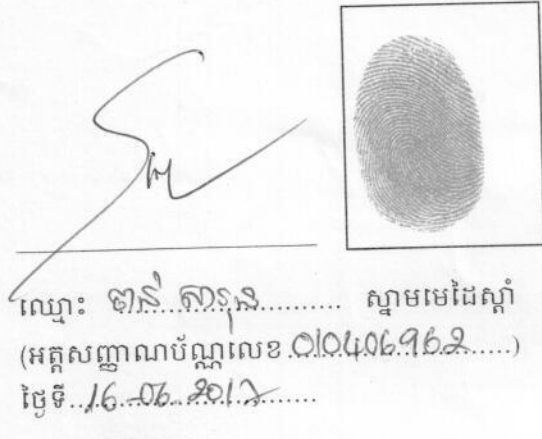 ឈ្មោះ ចាន់ តារុន ស្នាមមេដៃស្ដាំ
(អត្តសញ្ញាណប័ណ្ណលេខ 010406962)
ថ្ងៃទី 16-06-2017